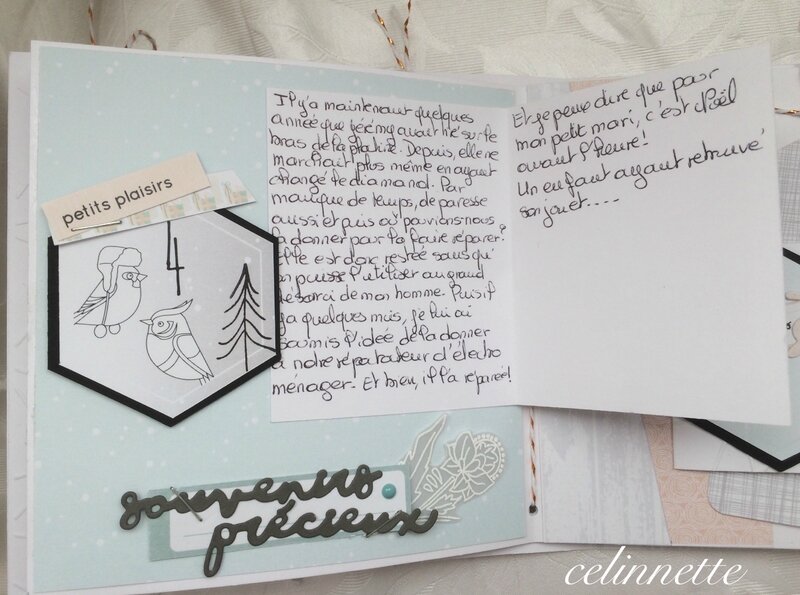 petits plaisirs
4
Il y'a maintenant quelques
année que Jérémy avait tiré sur le
bras de la platine. Depuis, elle ne
marchait plus même en ayant
changé le diamand. Par
manque de temps, de paresse
aussi et puis où pouvions-nous
la donner pour la faire réparer?
Elle est donc restée sans qu'
on puisse l'utiliser au grand
désarroi de mon homme. Puis il
y a quelques mois, je lui ai
soumis l'idée de la donner
à notre réparateur d'électro
ménager. Et bien, il l'a réparée!
Et je peux dire que pour
mon petit mari, c'est Noël
avant l'heure!
Un enfant ayant retrouvé
son jouet....
souvenirs
précieux
celinnette